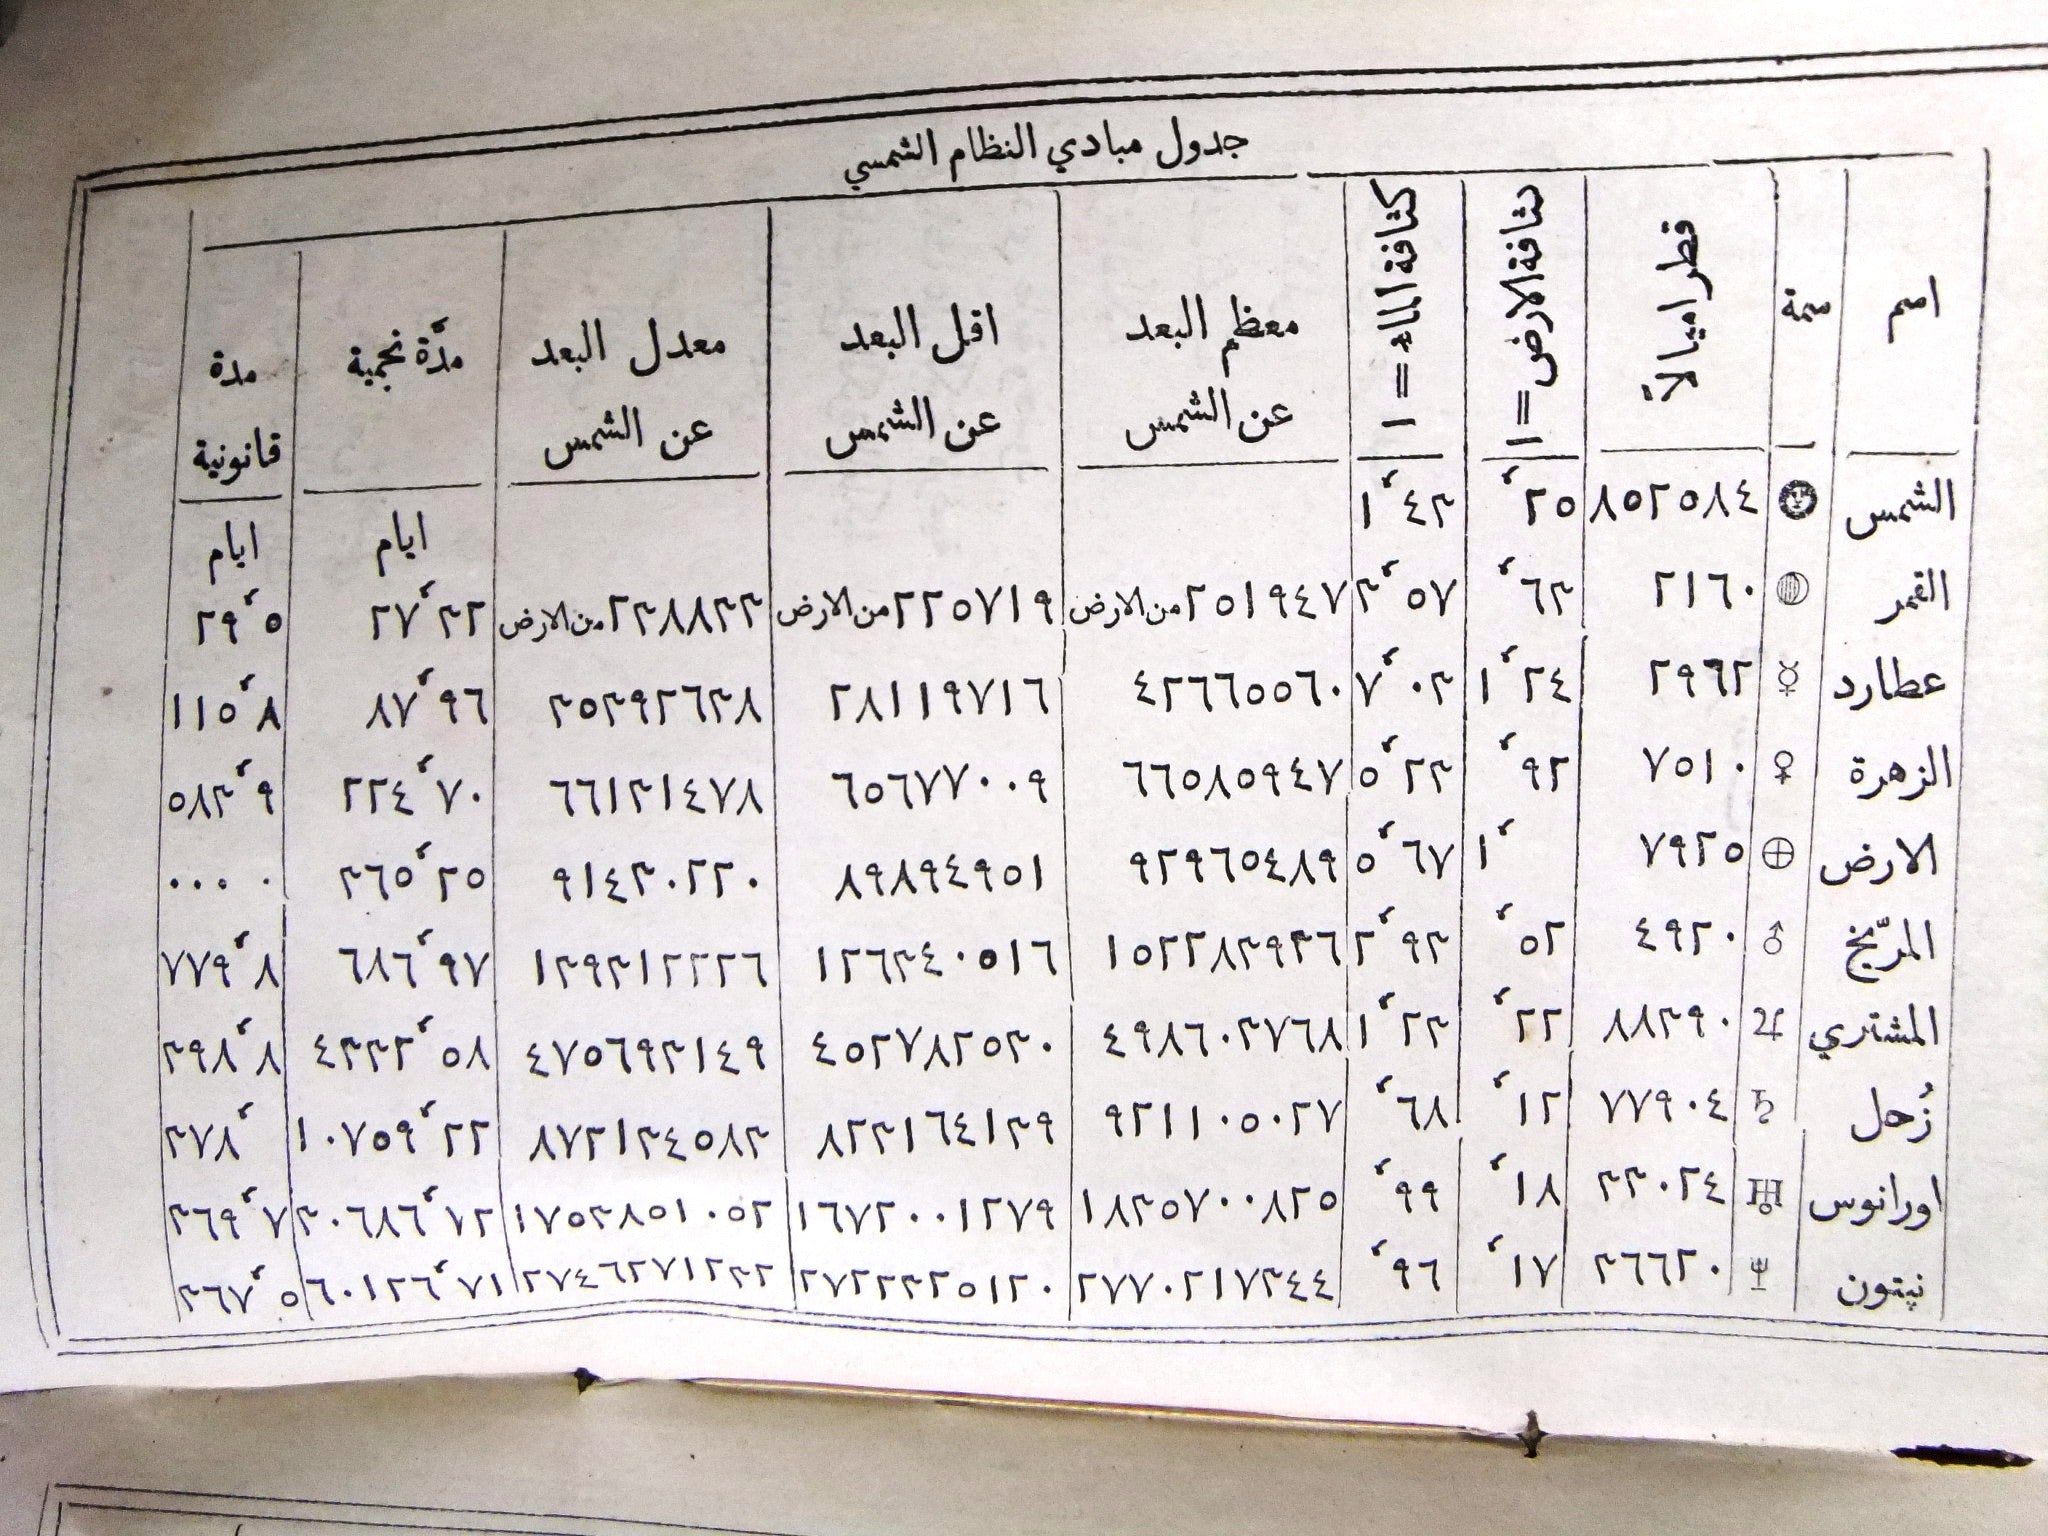 جدول مبادي النظام الشمسي
اسم سمة قطر اميالاً كثافة الارض = ١ كثافة الماء = ١ معظم البعد عن الشمس اقل البعد عن الشمس معدل البعد عن الشمس مدَّة نجمية مدة قانونية
ايام ايام
الشمس ☉ ٨٥٢٥٨٤ ٬٢٥ ١٬٤٣
القمر ☽ ٢١٦٠ ٬٦٣ ٣٬٥٧ ٢٥١٩٤٧ من الارض ٢٢٥٧١٩ من الارض ٢٣٨٨٣٣ من الارض ٢٧٬٣٢ ٢٩٬٥
عطارد ☿ ٢٩٦٢ ١٬٢٤ ٧٬٠٣ ٤٢٦٦٥٥٦٠ ٢٨١١٩٧١٦ ٣٥٣٩٢٦٣٨ ٨٧٬٩٦ ١١٥٬٨
الزهرة ♀ ٧٥١٠ ٬٩٢ ٥٬٢٣ ٦٦٥٨٥٩٤٧ ٦٥٦٧٧٠٠٩ ٦٦١٣١٤٧٨ ٢٢٤٬٧٠ ٥٨٣٬٩
الارض ⊕ ٧٩٢٥ ١٬ ٥٬٦٧ ٩٢٩٦٥٤٨٩ ٨٩٨٩٤٩٥١ ٩١٤٣٠٢٢٠ ٣٦٥٬٢٥ ....
المرّيخ ♂ ٤٩٢٠ ٬٥٢ ٢٬٩٣ ١٥٢٢٨٣٩٣٦ ١٢٦٣٤٠٥١٦ ١٣٩٣١٢٢٢٦ ٦٨٦٬٩٧ ٧٧٩٬٨
المشتري ♃ ٨٨٣٩٠ ٬٢٢ ١٬٢٣ ٤٩٨٦٠٣٧٦٨ ٤٥٢٧٨٢٥٣٠ ٤٧٥٦٩٣١٤٩ ٤٣٣٢٬٥٨ ٣٩٨٬٨
زُحل ♄ ٧٧٩٠٤ ٬١٢ ٬٦٨ ٩٢١١٠٥٠٢٧ ٨٢٣١٦٤١٣٩ ٨٧٢١٣٤٥٨٣ ١٠٧٥٩٬٢٢ ٣٧٨٬
اورانوس ♅ ٣٣٠٢٤ ٬١٨ ٬٩٩ ١٨٣٥٧٠٠٨٢٥ ١٦٧٢٠٠١٢٧٩ ١٧٥٣٨٥١٠٥٢ ٣٠٦٨٦٬٨٢ ٣٦٩٬٧
نپتون ♆ ٣٦٦٢٠ ٬١٧ ٬٩٦ ٢٧٧٠٢١٧٣٤٤ ٢٧٢٢٣٢٥١٢٠ ٢٧٤٦٢٧١٢٣٢ ٦٠١٢٦٬٧١ ٣٦٧٬٥